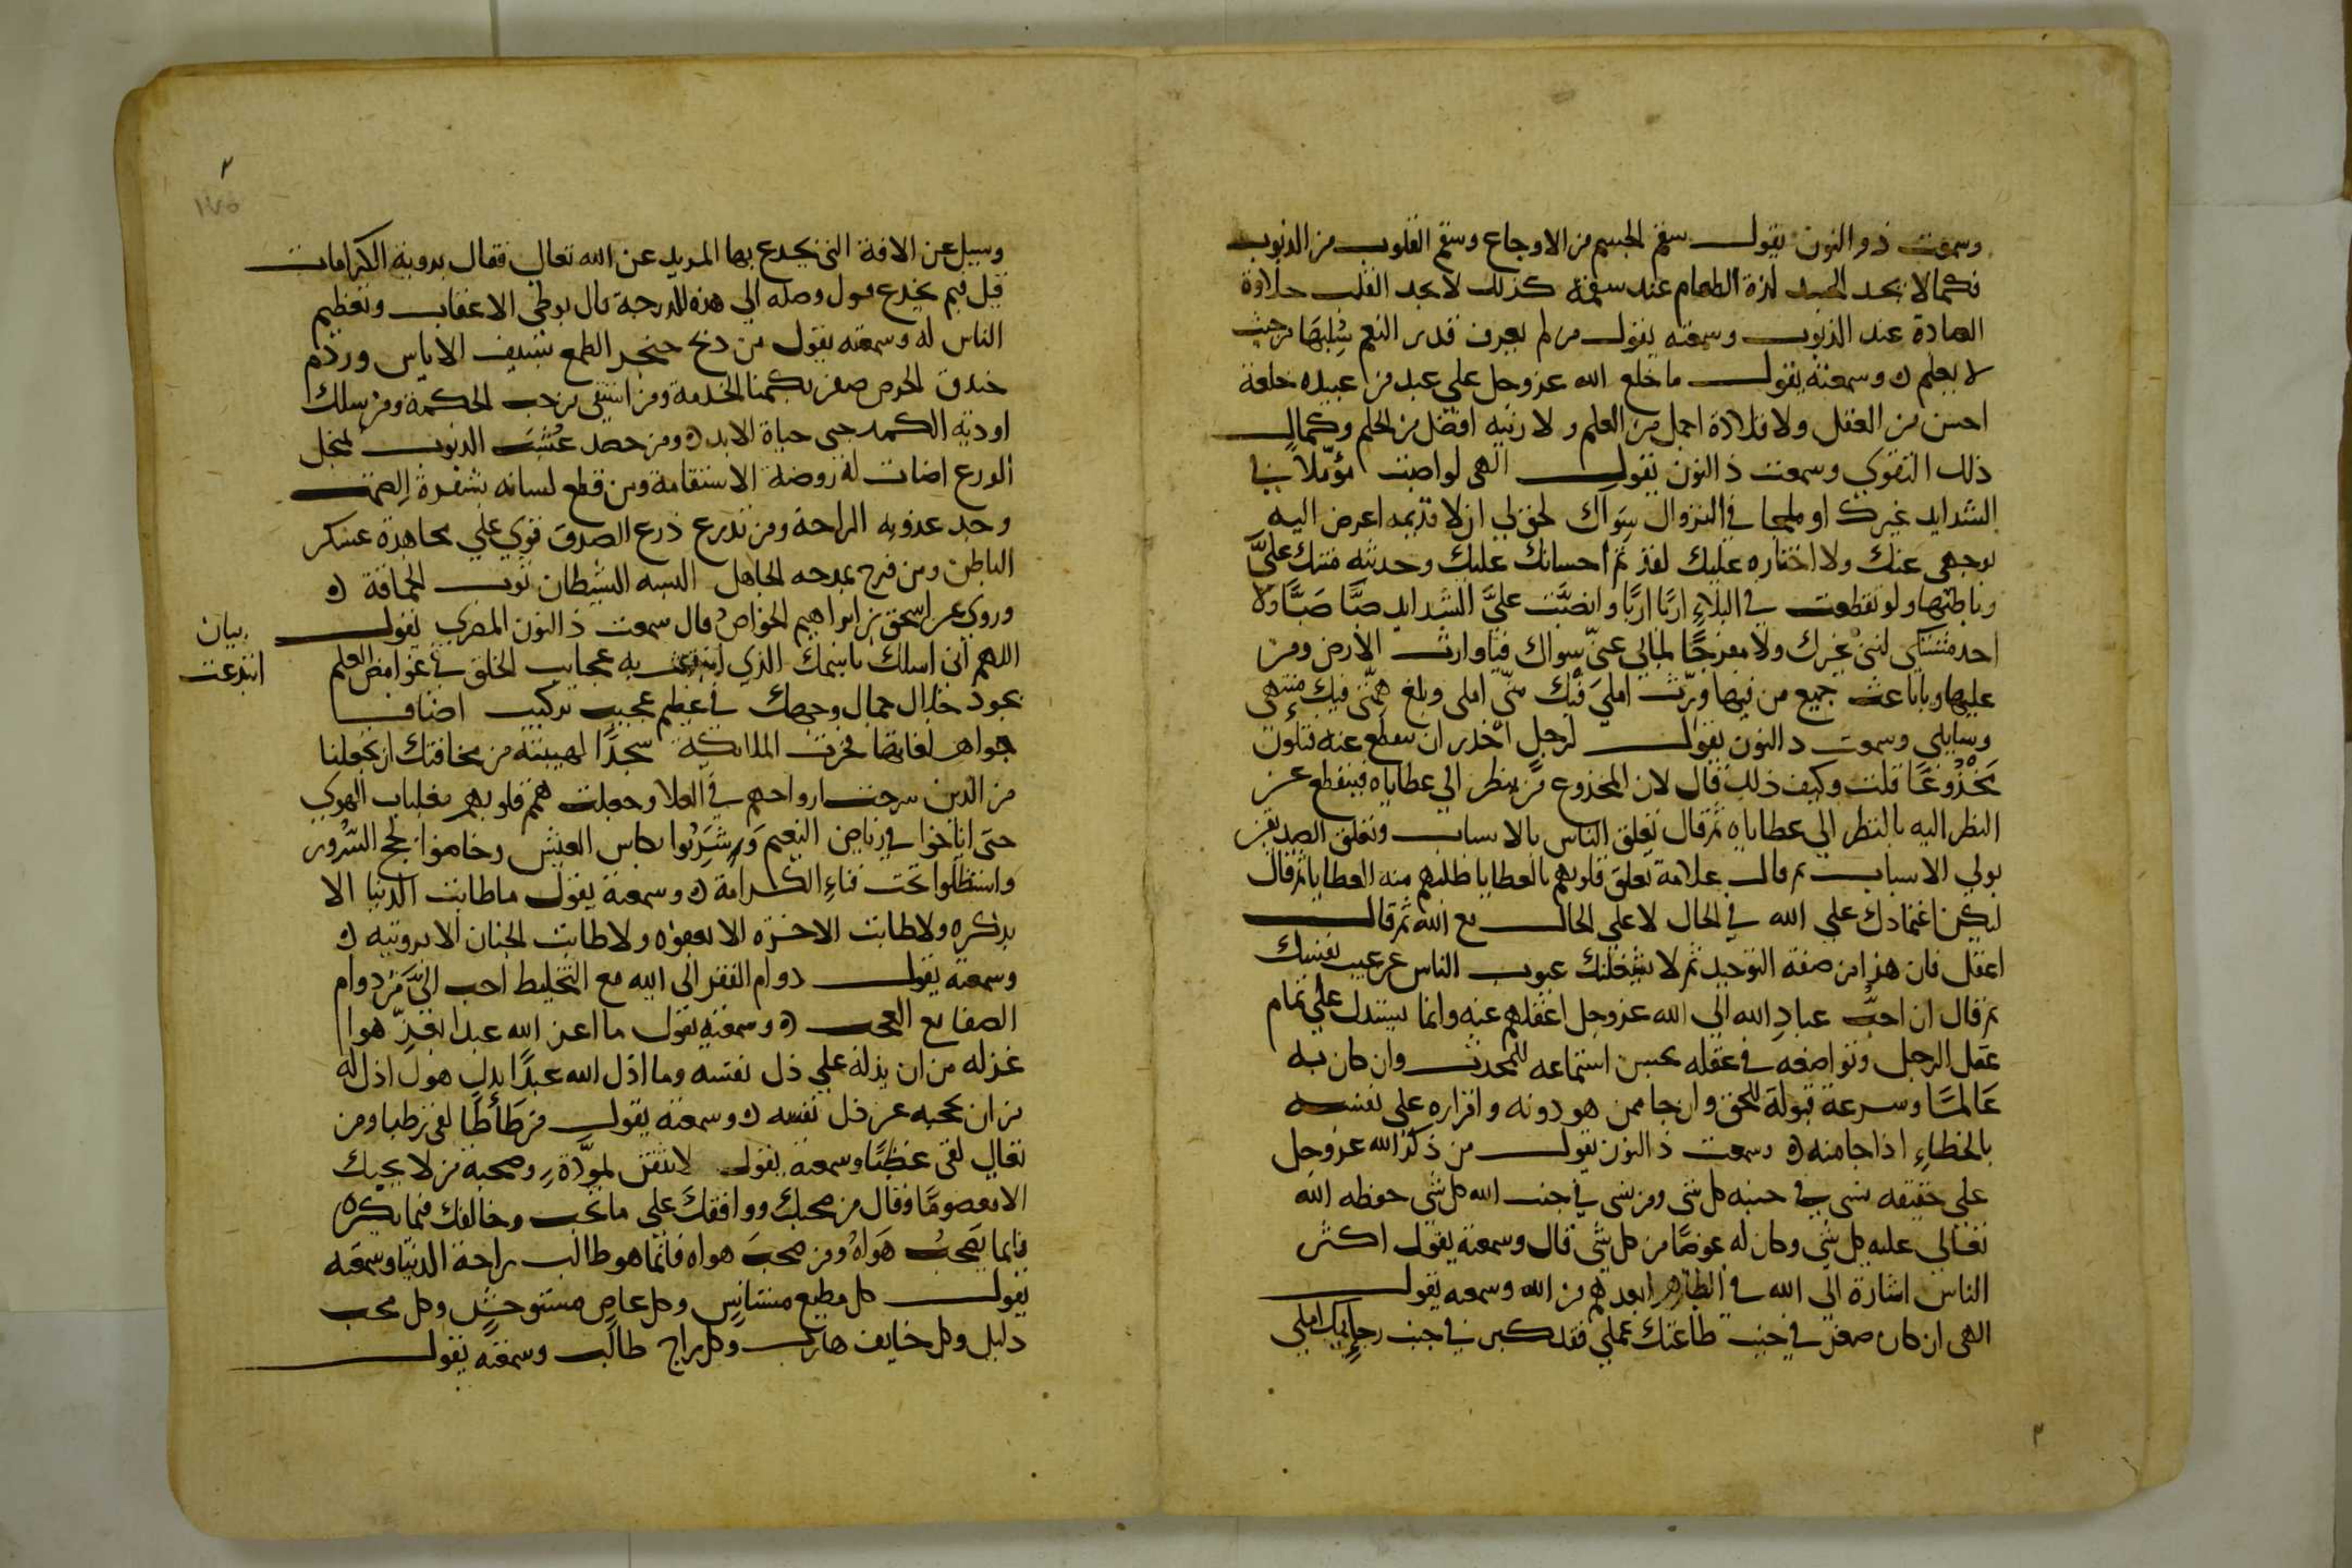 وسمعت ذو النون يقول سقم الجسم من الاوجاع وسقم القلوب من الذنوب
فكما لا يجد الجسد لذة الطعام عند سقمه كذلك لا يجد القلب حلاوة
العبادة عند الذنوب وسمعته يقول من لم يعرف قدر النعم سُلبها من حيث
لا يعلم ه وسمعته يقول ما خلع الله عز وجل على عبد من عبيده خلعة
احسن من العقل ولا قلادة اجمل من العلم ولا زينه افضل من الحلم وكمال
ذلك التقوى وسمعت ذ النون يقول الهي لو اصبت مؤئلاً في
الشدايد غيرك او ملجا في النزوال سواك لحق لي ان لا اعرض اليه
بوجهي عنك ولا اختاره عليك لقديم احسانك عليك وحديثه منتك عليَّ
وباطنها ولو تقطعت في البلاءِ اربًا اربًا وانصبَّت عليَّ الشدايد صبًّا صبًّا ولا
احد مشتكى لبثي غيرك ولا مفرجًا لما بي عني سواك فيا وارث الارض ومن
عليها ويا باعث جميع من فيها ورّث املي فيك مني املي وبلغ همتي فيك منتهى
وسايلي وسمعت ذ النون يقول لرجل احذر ان تنقطع عنه فتكون
مَخْذُوعًا قلت وكيف ذلك قال لان المخذوع من ينظر الى عطاياه فينقطع عن
النظر اليه بالنظر الى عطاياه ثم قال تعلق الناس بالاسباب وتعلق الصديقين
بولي الاسباب ثم قال علامة تعلق قلوبهم بالعطايا طلبهم منه العطايا ثم قال
ليكن اعتمادك على الله في الحال لا على الحال مع الله ثم قال
اعقل فان هذا من صفة التوحيد ثم لا يشغلنك عيوب الناس عن عيب نفسك
ثم قال ان احبَّ عبادِ الله الى الله عز وجل اعقلهم عنه وانما يستدل على تمام
عقل الرجل وتواضعه في عقله بحسن استماعه للمحدث وان كان به
عَالمًا وسرعة قبوله للحق وان جا ممن هو دونه واقراره على نفسه
بالخطاءِ اذا جا منه ه وسمعت ذ النون يقول من ذكر الله عز وجل
على حقيقه نسى في جنبه كل شي ومن نسي في جنب الله كل شي حفظه الله
تعالى عليه كل شي وكان له عوضًا من كل شي قال وسمعته يقول اكثر
الناس اشارة الى الله في الظاهر ابعدهم من الله وسمعه يقول
الهي ان كان صغر في جنب طاعتك عملي فقد كبر في جنب رجايك املي
٢
٣
١٧٥
وسيل عن الافة التي يخدع بها المريد عن الله تعالى فقال بروية الكرامات
قيل فبم يخدع قبل وصله الى هذه الدرجة قال بوطي الاعقاب وتعظيم
الناس له وسمعته يقول من ذبح حنجر الطمع بسيف الاياس وردم
خندق الحرص ظفر بكيمياء الخدمة ومن استقى من جب الحكمة ومن سلك
اودية الكمد جنى حياة الابد ه ومن حصد عُشْبَ الذنوب بمنجل
الورع اضات له روضة الاستقامة ومن قطع لسانه بشفرة الصمت
وجد عذوبه الراحة ومن تدرع درع الصدق قوي على مجاهدة عسكر
الباطن ومن فرح بمدحه الجاهل البسه الشيطان ثوب الحماقة ه
وروي عن اسحق بن ابراهيم الخواص قال سمعت ذ النون المصري يقول
اللهم اني اسلك باسمك الذي ابتدعت به عجايب الخلق في غوامض العلم
بيان
ابتدعت
بجود جلال جمال وجهك في عظيم عجيب تركيب اصناف
جواهر لغاتها فخرت الملايكة سجدًا لهيبته من مخافتك ان تجعلنا
من الذين سرحت ارواحهم في العلا وجعلت همم قلوبهم مغلبات الهوى
حتى اناخوا في رياض النعيم وَشَرِبُوا بكاس العيش وخاضوا لجج السُّرور
واستظلوا تحت فناءِ الكرامة ه وسمعته يقول ما طابت الدنيا الا
بذكره ولا طابت الاخرة الا بعفوه ولا طابت الجنان الا برويته ه
وسمعته يقول دوام الفقر الى الله مع التخليط احب اليَّ من دوام
الصفا مع العجب ه وسمعته يقول ما اعز الله عبدا بعزّ هو
اعز له من ان يذله على ذل نفسه وما اذل الله عبدًا بذل هو اذل له
من ان يحجبه عن ذل نفسه ه وسمعته يقول من تطأطأ لقي رطبا ومن
تعالى لقي عطبًا وسمعته يقول لا تثقن بمودّة وصحبة من لا يحبك
الا معصومًا وقال من صحبك ووافقك على ما تحب وخالفك فيما يكره
فانما يصحبُ هَوَاهُ ومن صحبَ هواه فانما هو طالب راحة الدنيا وسمعته
يقول كل مطيع مستانِس وكل عاصٍ مستوحشٍ وكل محب
ذليل وكل خايف هارب وكل راج طالب وسمعته يقول